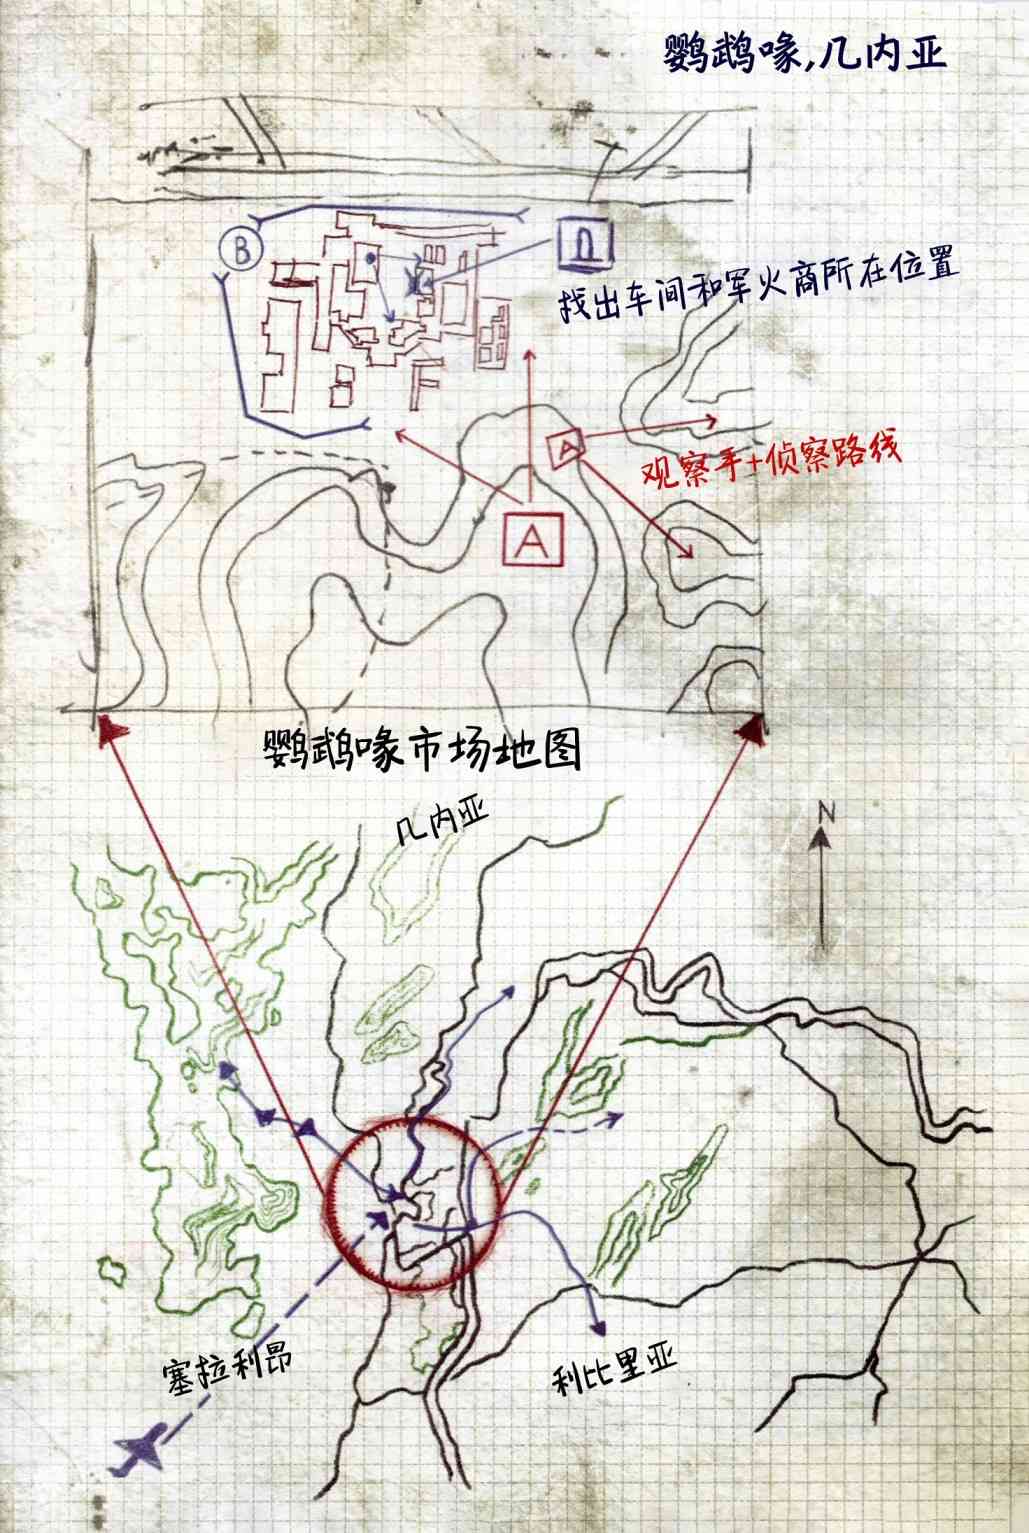 鹦鹉喙,几内亚
B
找出车间和军火商所在位置
A
观察手+侦察路线
A
鹦鹉喙市场地图
几内亚
N
塞拉利昂
利比里亚